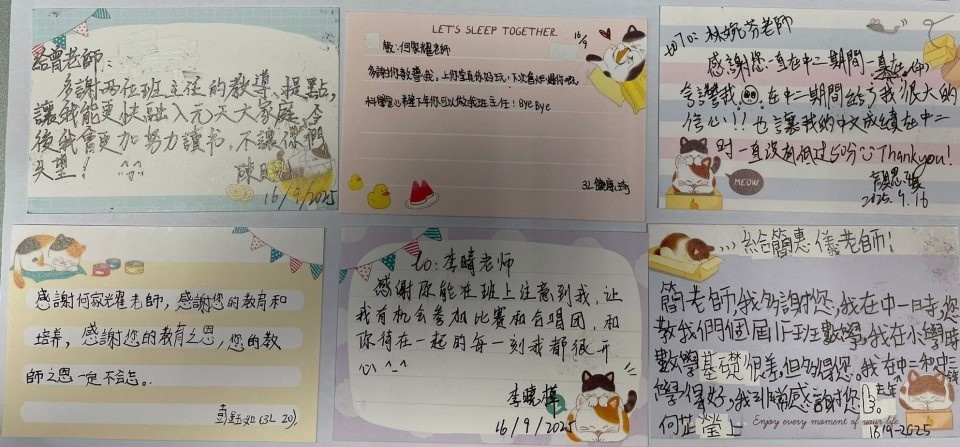 給曾老師：
多謝两位班主任的教導、提點,
讓我能更快融入元天大家庭,今
後我會更加努力讀书,不讓你們
失望！ ^-^
陳
16/9/2025
LET'S SLEEP TOGETHER.
16/9
致:何家耀老師
多謝你教導我,上你堂真係好玩,下次
下年你可以做我班主任！Bye Bye
3L
To: 林婉芬老師
感謝您一直在中二期間一直在
誇讚我 在中二期間給了我很大的
信心!! 也讓我的中文成績在中二
時一直沒有低过50分 Thank you!
2025.9.16
MEOW
感謝何家耀老師，感謝您的教育和
培养，感謝您的教育之恩，您的教
師之恩一定不忘。
(3L 20)
to:李晴老师
感谢你能在班上注意到我,让
我有机会参加比賽和合唱团,和
你待在一起的每一刻我都很开
心 ^-^
李曉樺
16/9/2025
...給簡惠儀老師！
簡老師,我多謝您,我在中一時,您
教我們個
數學基礎很差,但多得您,我在中二和中三
學得好,我 感謝您
何芷瑩上
Enjoy every moment of your life.
16-9-2025